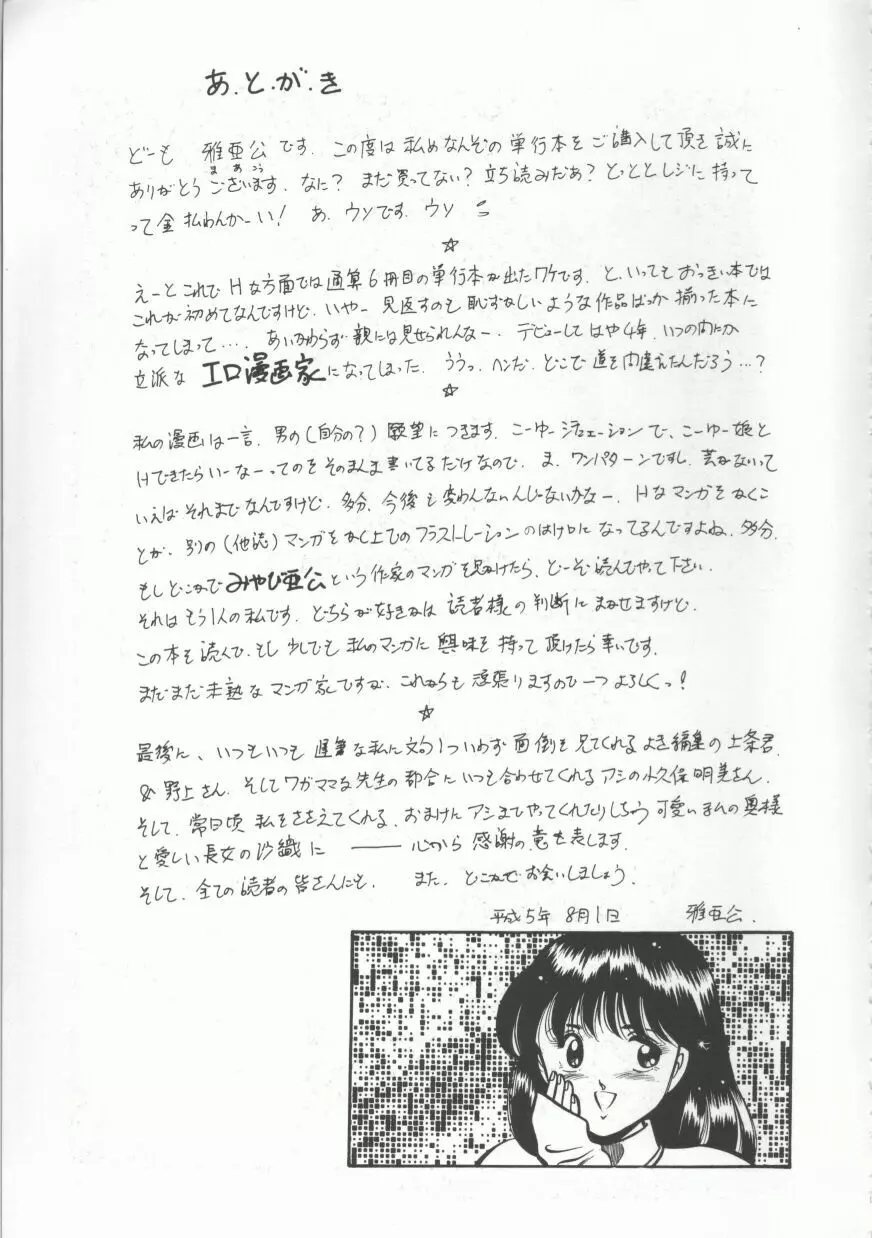 あ.と.が.き
どーも 雅亜公です. この度は私めなんぞの単行本をご購入して頂き誠に
まあこう
ありがとうございます. なに? まだ買ってない? 立ち読みだあ? とっととレジに持って
って金払わんかーい! あ、ウソです. ウソ
☆
えーとこれでHな方面では通算6冊目の単行本が出たワケです. と、いってもおっきい本では
これが初めてなんですけど. いやー 見返すのも恥ずかしいような作品ばっか揃った本に
なってしまって…. あいかわらず親には見せられんなー. デビューしてはや4年. いつの間にか
立派な エロ漫画家になってしまった. ううっ. ヘンだ. どこで道を間違えたんだろう…?
☆
私の漫画は一言. 男の(自分の?)願望につきます. こーゆーシチュエーションで、こーゆー娘と
Hできたらいーなーってのをそのまんま書いてるだけなので. ま、ワンパターンですし、芸がないって
いえばそれまでなんですけど. 多分、今後も変わんないんじないかなー. Hなマンガをかくこ
とが、別の(他誌)マンガをかく上でのフラストレーションのはけ口になってるんですよね、多分.
もしどこかでみやび亜公という作家のマンガを見かけたら、どーぞ読んでやって下さい.
それはもう1人の私です. どちらが好きかは 読者様の判断にまかせますけど.
この本を読んで、もし少しでも私のマンガに興味を持って頂けたら幸いです.
まだまだ未熟なマンガ家ですが、これからも頑張りますので一つよろしくっ!
☆
最後に、いつもいつも遅筆な私に文句1ついわず面倒を見てくれるよき編集の上条君
& 野上さん. そしてワガママな先生の都合にいつも合わせてくれるアシの小久保明美さん.
そして、常日頃私をささえてくれる、おまけにアシまでやってくれたりしちゃう可愛いまんの奥様
と愛しい長女の沙織に ―― 心から感謝の意を表します.
そして、全ての読者の皆さんにも. また、どこかでお会いしましょう.
平成5年 8月1日 雅亜公.